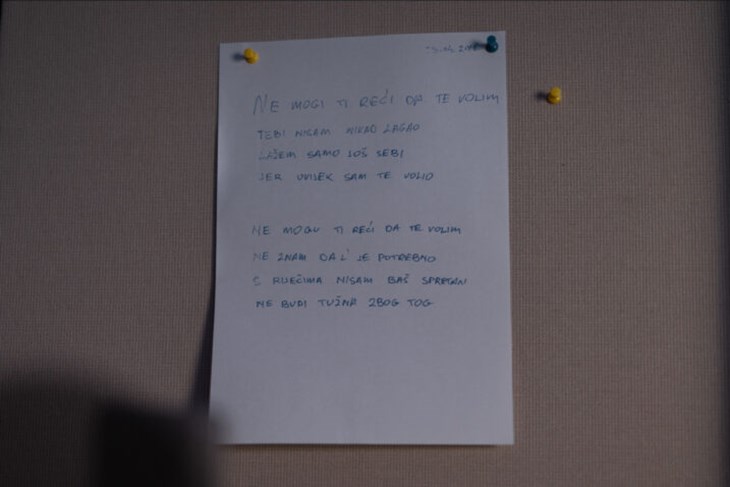 NE MOGU TI REĆI DA TE VOLIM
TEBI NISAM NIKAD LAGAO
LAŽEM SAMO JOŠ SEBI
JER UVIJEK SAM TE VOLIO
NE MOGU TI REĆI DA TE VOLIM
NE ZNAM DA LI JE POTREBNO
S RIJEČIMA NISAM BAŠ SPRETAN
NE BUDI TUŽNA ZBOG TOG